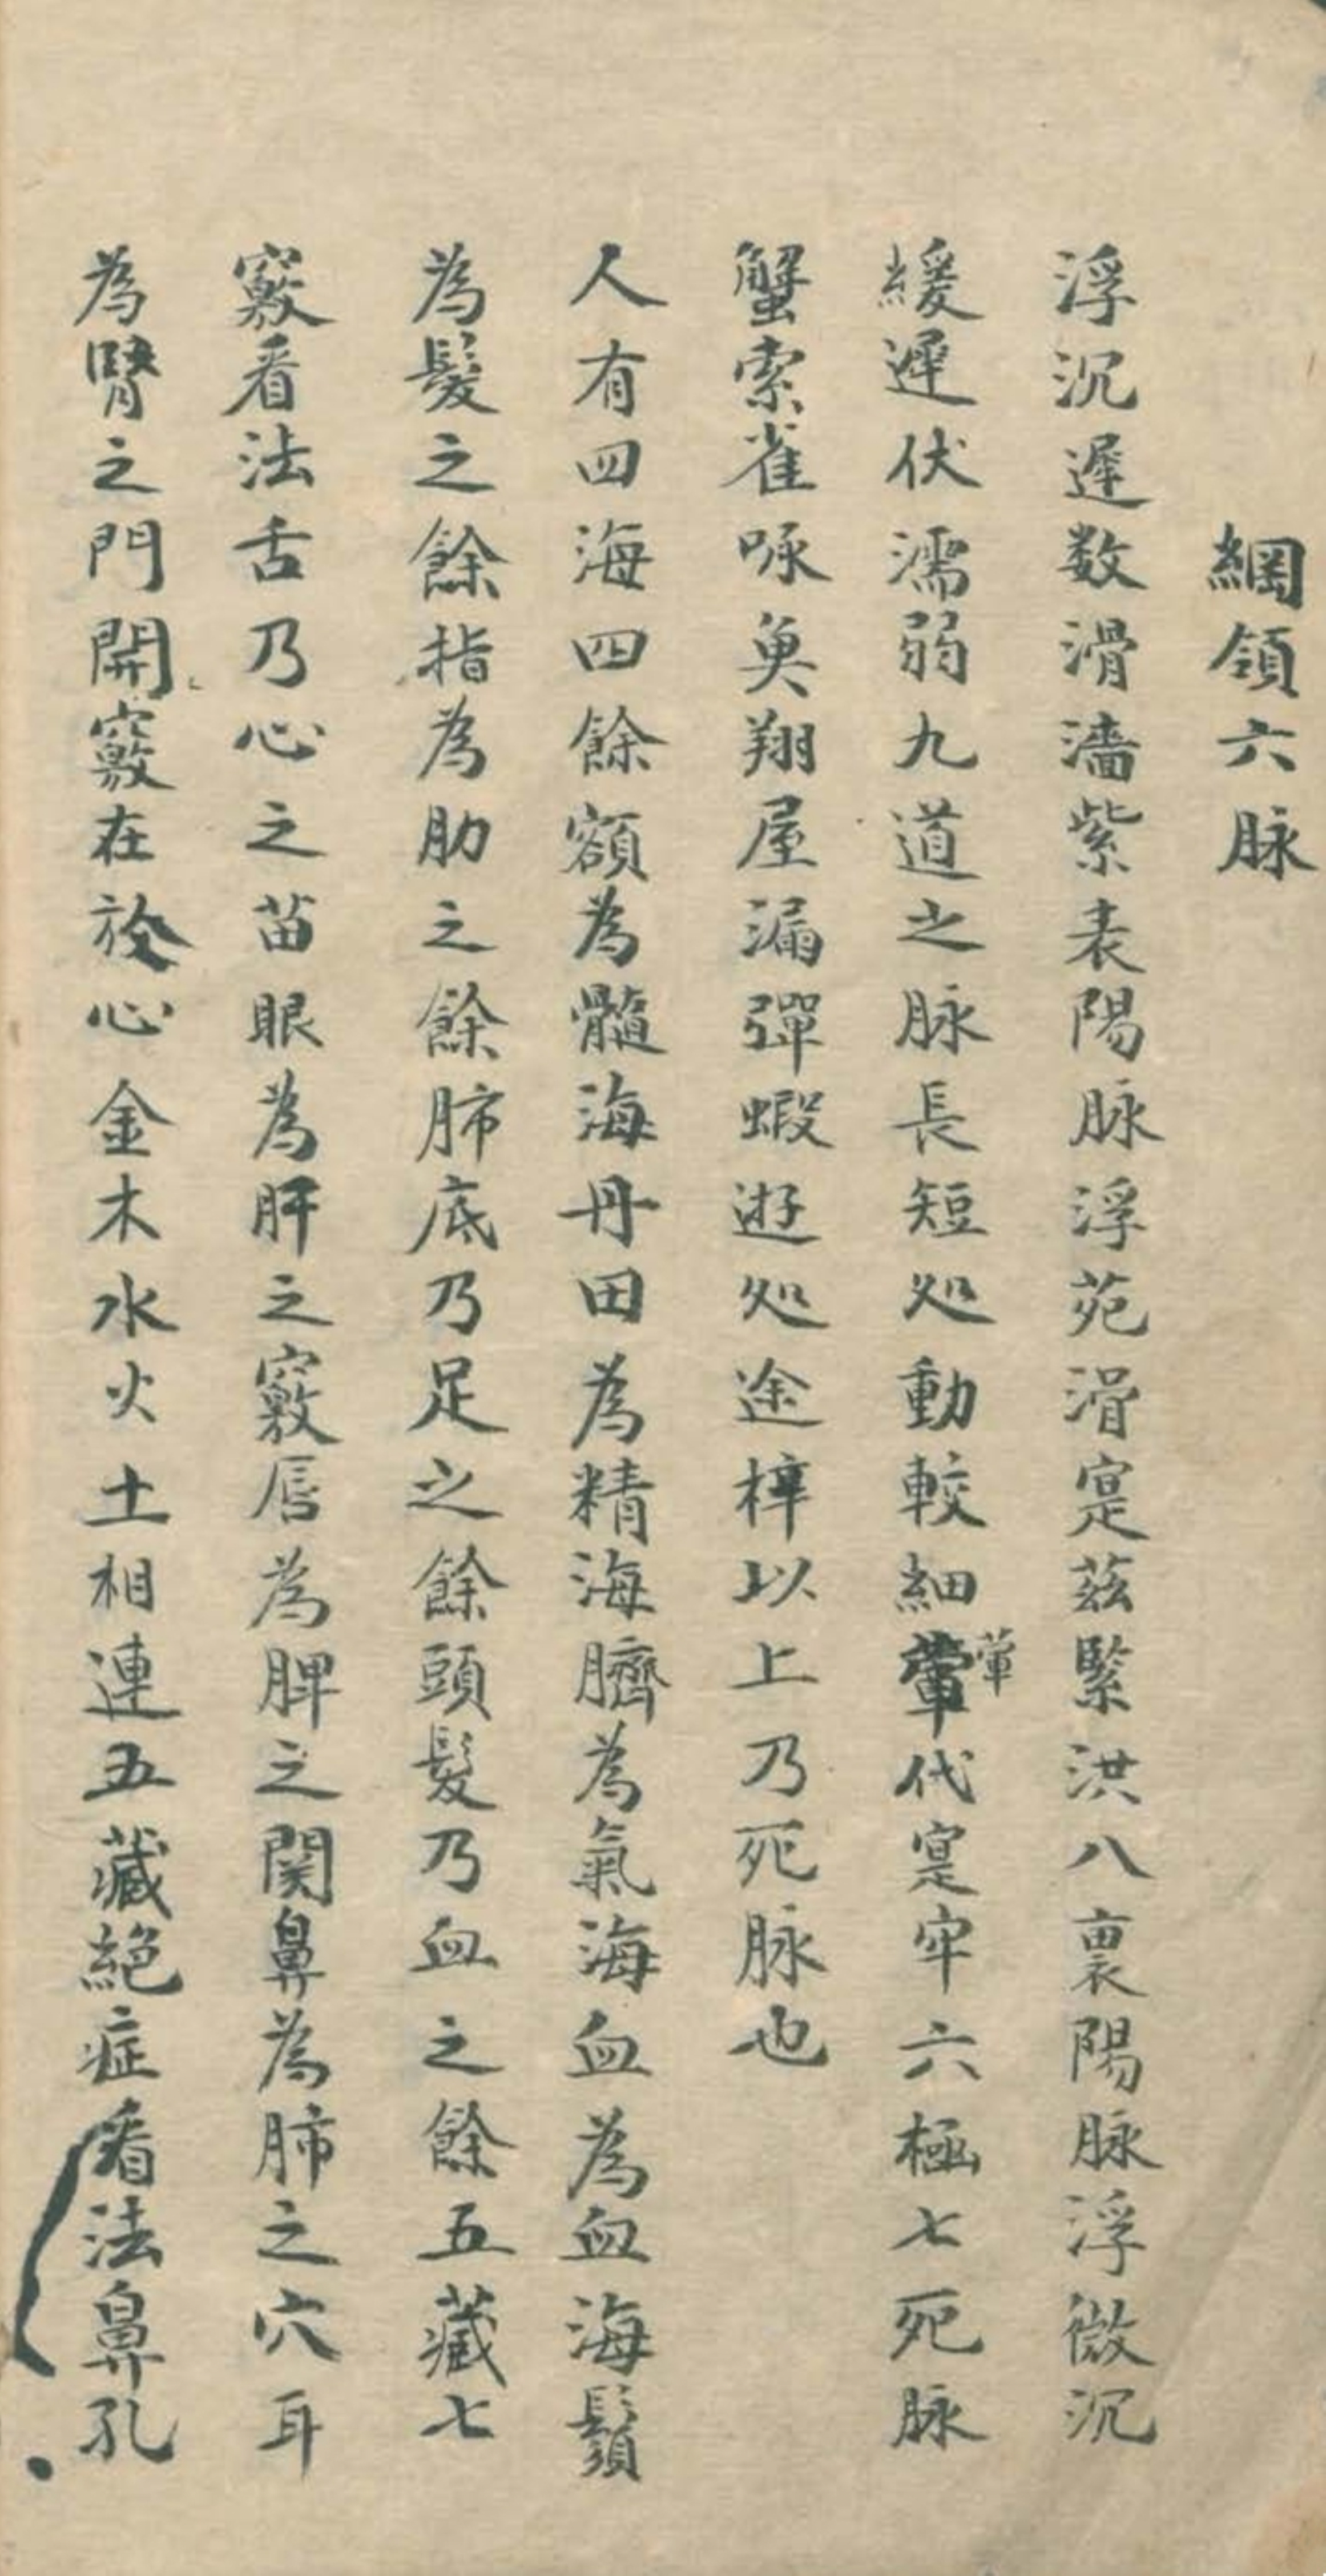 綱領六脉
浮沉遲数滑濇紫表陽脉浮苑滑寔茲緊洪八裏陽脉浮微沉
緩遲伏濡弱九道之脉長短処動較細葷代寔牢六極七死脉
蟹索雀啄奂翔屋漏彈蝦逰処途梓以上乃死脉也
人有四海四餘額為髓海丹田為精海臍為氣海血為血海鬚
為髮之餘指為肋之餘肺底乃足之餘頭髮乃血之餘五藏七
竅看法舌乃心之苗眼為肝之竅唇為脾之関鼻為肺之穴耳
為腎之門開竅在於心金木水火土相連五藏絕症看法鼻孔